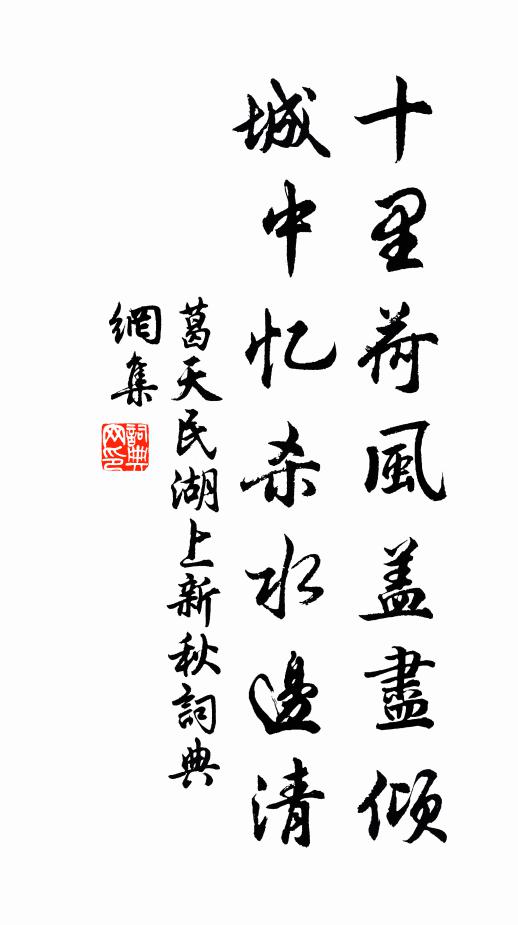 十里荷風盖盡倾
城中忆杀水邊清
葛天民湖上新秋詞典
網集
詞典
网印